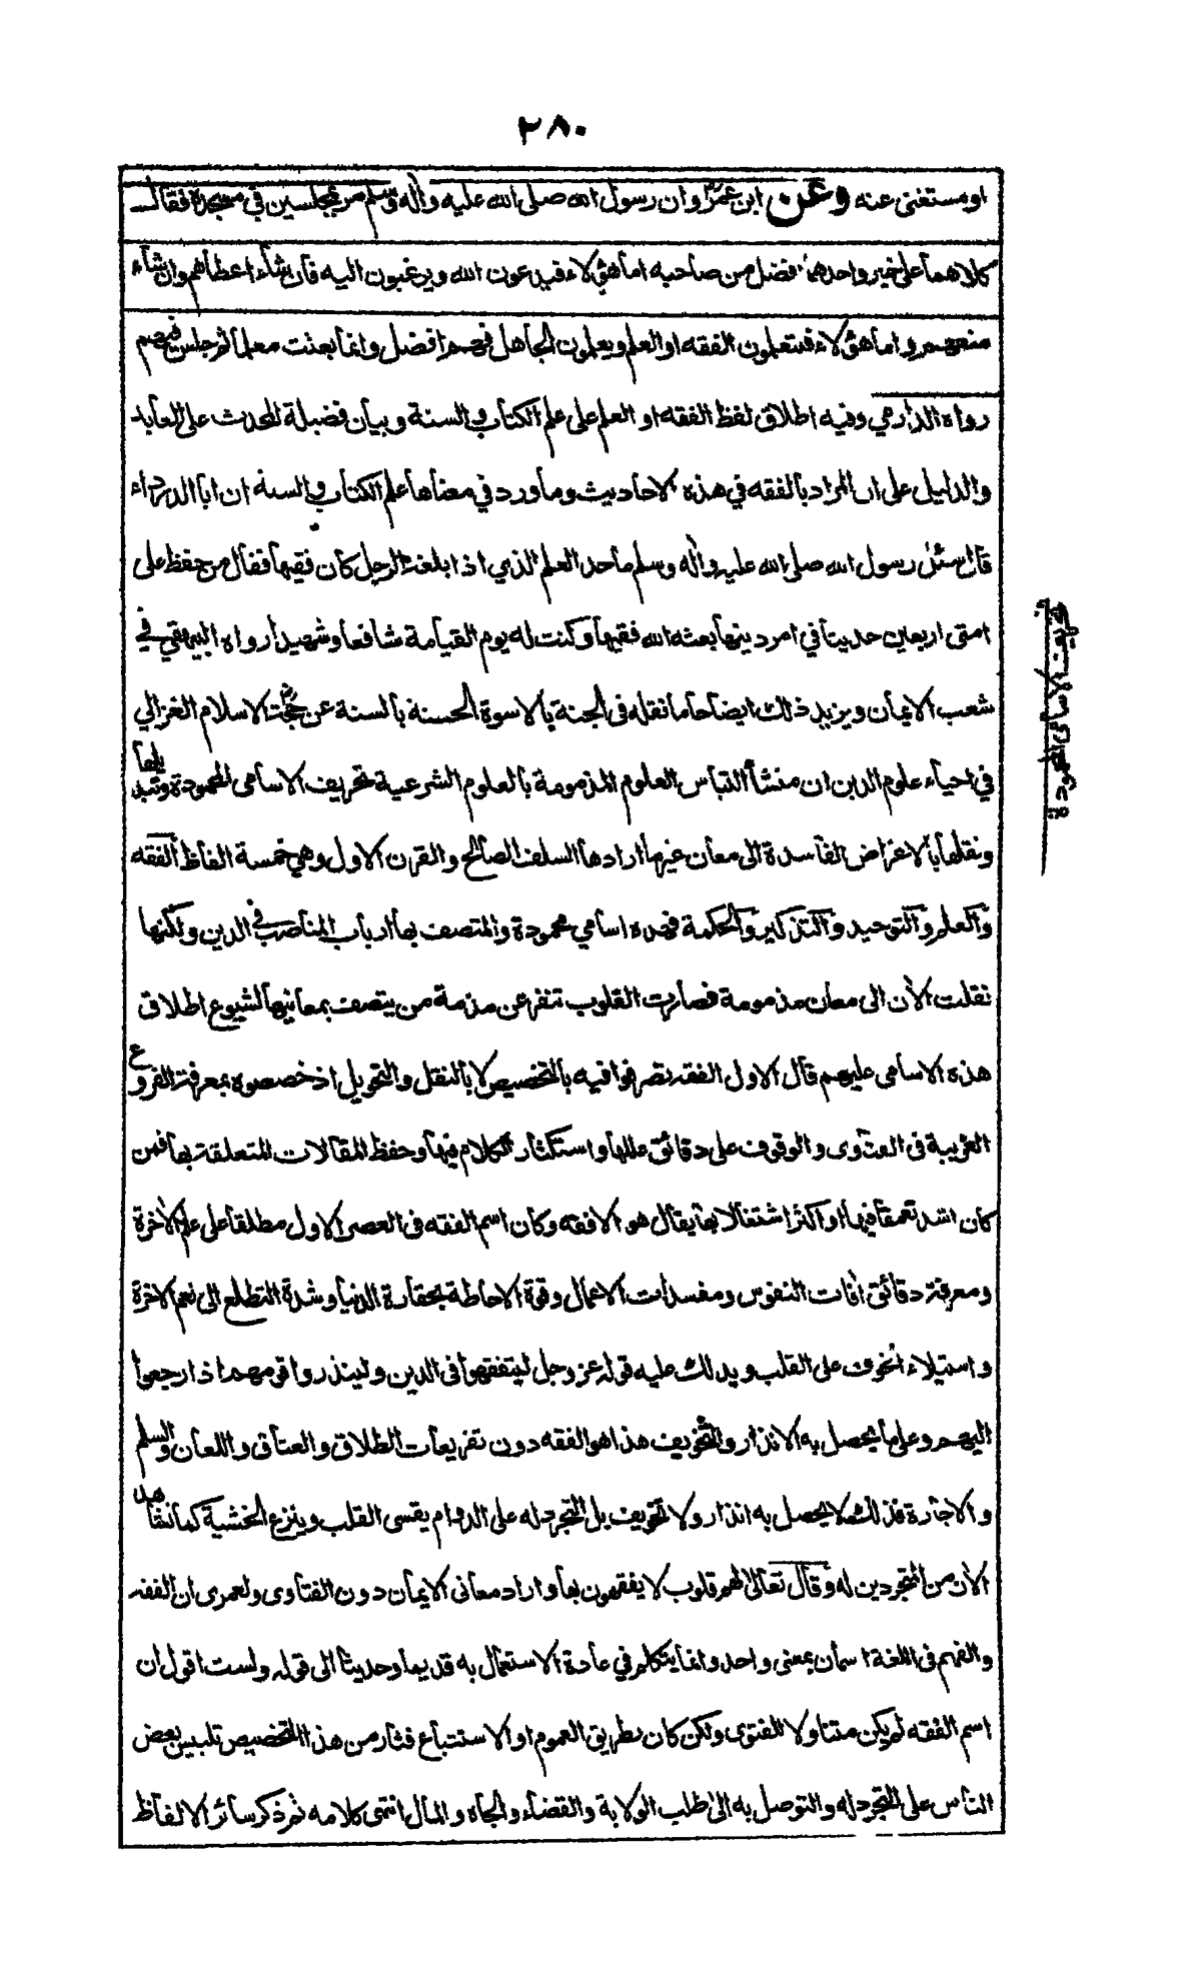 ٢٨٠
او يستغنى عنه وعن ابن عمرو ان رسول الله صلى الله عليه وآله وسلم مر بمجلسين في مسجده فقال
كلاهما على خير واحدهما افضل من صاحبه اما هؤلاء فيدعون الله ويرغبون اليه فان شاء اعطاهم وان شاء
منعهم واما هؤلاء فيتعلمون الفقه او العلم ويعلمون الجاهل فهم افضل وانما بعثت معلما ثم جلس فيهم
رواه الدارمي وفيه اطلاق لفظ الفقه او العلم على علم الكتاب والسنة وبيان فضيلة المحدث على العابد
والدليل على ان المراد بالفقه في هذه الاحاديث وما ورد في معناها علم الكتاب والسنه ان ابا الدرداء
قال سئل رسول الله صلى الله عليه وآله وسلم ما حد العلم الذي اذا بلغه الرجل كان فقيها فقال من حفظ على
امتى اربعين حديثا في امر دينها بعثه الله فقيها وكنت له يوم القيامة شافعا وشهيدا رواه البيهقي في
شعب الايمان ويزيد ذلك ايضاحا ما نقله في الجنة بالاسوة الحسنة بالسنة عن حجة الاسلام الغزالي
في احياء علوم الدين ان منشأ التباس العلوم المذمومة بالعلوم الشرعية تحريف الاسامى المحمودة وتبديلها
ونقلها بالاغراض الفاسدة الى معان غير ما ارادها السلف الصالح والقرن الاول وهي خمسة الفاظ الفقه
والعلم والتوحيد والتذكير والحكمة فهذه اسامي محمودة والمتصف بها ارباب المناصب في الدين ولكنها
نقلت الآن الى معان مذمومة فصارت القلوب تنفر عن مذمة من يتصف بمعانيها لشيوع اطلاق
هذه الاسامى عليهم قال الاول الفقه تصرفوا فيه بالتخصيص لا بالنقل والتحويل اذ خصصوه بمعرفة الفروع
الغريبة فى الفتوى والوقوف على دقائق عللها واستكثار الكلام فيها وحفظ المقالات المتعلقة بها فمن
كان اشد تعمقا فيها او اكثر اشتغالا بها يقال هو الافقه وكان اسم الفقه فى العصر الاول مطلقا على علم الآخرة
ومعرفة دقائق آفات النفوس ومفسدات الاعمال وقوة الاحاطة بحقارة الدنيا وشدة التطلع الى نعيم الاخرة
واستيلاء الخوف على القلب ويدلك عليه قوله عز وجل ليتفقهوا فى الدين ولينذروا قومهم اذا رجعوا
اليهم وعلم ما يحصل به الانذار والتخويف هذا هو الفقه دون تفريعات الطلاق والعتاق واللعان والسلم
والاجارة فذلك لا يحصل به انذار ولا تخويف بل التجرد له على الدوام يقسى القلب وينزع الخشية كما نشاهد
الآن من المتجردين له وقال تعالى لهم قلوب لا يفقهون بها واراد معانى الايمان دون الفتاوى ولعمرى ان الفقه
والفهم فى اللغة اسمان بمعنى واحد وانما يتكلم في عادة الاستعمال به قديما وحديثا الى قوله ولست اقول ان
اسم الفقه لم يكن متناولا للفتوى ولكن كان بطريق العموم او الاستتباع فثار من هذا التخصيص تلبيس بعض
الناس على التجرد له والتوصل به الى طلب الولاية والقضاء والجاه والمال انتهى كلامه ثم ذكر سائر الالفاظ